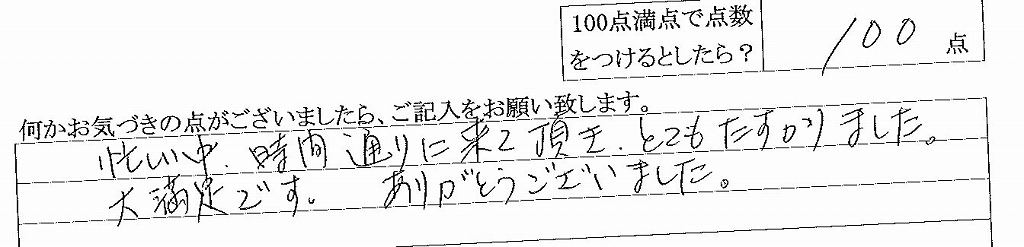 100点満点で点数
をつけるとしたら？
100 点
何かお気づきの点がございましたら、ご記入をお願い致します。
忙しい中、時間通りに来て頂き、とてもたすかりました。
大満足です。 ありがとうございました。